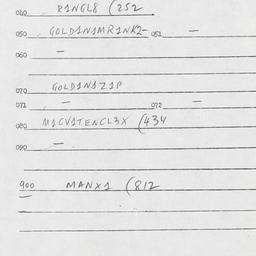 040 R1NGL8 (252
050 GOLD1N1MR1NK2- 051 —
060 —
070 GOLD1N1Z1P
071 — 072 —
080 M1CV1TENCL3X (434
090 —
900 MANX1 (812
—
—